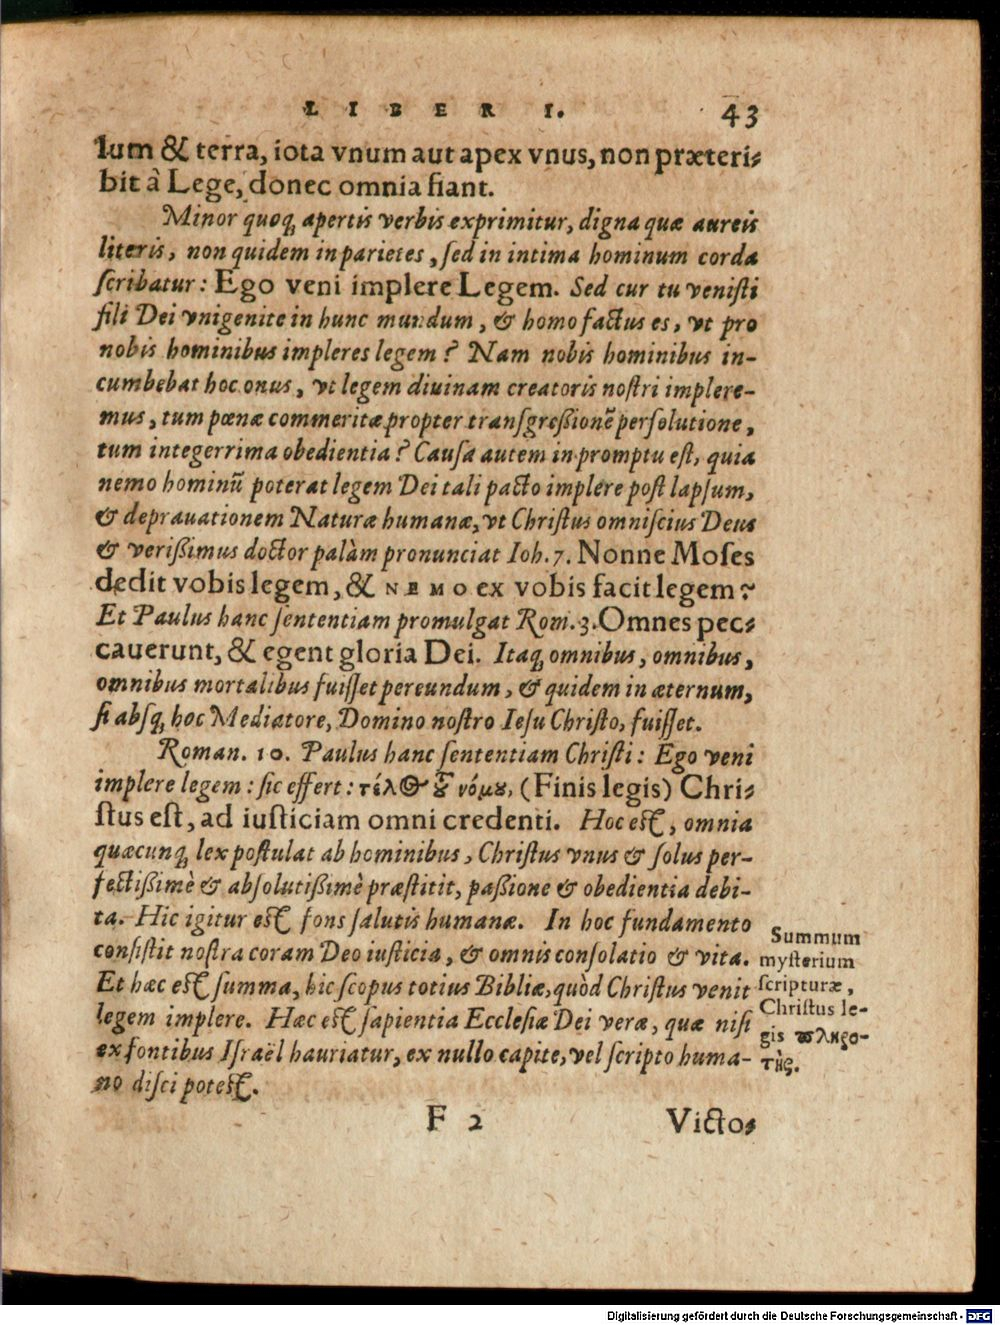 LIBER I. 43
lum & terra, iota vnum aut apex vnus, non præteri-
bit à Lege, donec omnia fiant.
Minor quoq; apertis verbis exprimitur, digna quæ aureis
literis, non quidem in parietes, ſed in intima hominum corda
ſcribatur: Ego veni implere Legem. Sed cur tu veniſti
fili Dei vnigenite in hunc mundum, & homo factus es, vt pro
nobis hominibus impleres legem? Nam nobis hominibus in-
cumbebat hoc onus, vt legem diuinam creatoris noſtri implere-
mus, tum pœnæ commeritæ propter tranſgreßionẽ perſolutione,
tum integerrima obedientia? Cauſa autem in promptu eſt, quia
nemo hominũ poterat legem Dei tali pacto implere poſt lapſum,
& deprauationem Naturæ humanæ, vt Chriſtus omniſcius Deus
& verißimus doctor palàm pronunciat Ioh. 7. Nonne Moſes
dedit vobis legem, & NEMO ex vobis facit legem?
Et Paulus hanc ſententiam promulgat Rom. 3. Omnes pec-
cauerunt, & egent gloria Dei. Itaq; omnibus, omnibus,
omnibus mortalibus fuiſſet pereundum, & quidem in æternum,
ſi abſq; hoc Mediatore, Domino noſtro Ieſu Chriſto, fuiſſet.
Roman. 10. Paulus hanc ſententiam Chriſti: Ego veni
implere legem: ſic effert: τέλος τοῦ νόμου, (Finis legis) Chri-
ſtus eſt, ad iuſticiam omni credenti. Hoc eſt, omnia
quæcunq; lex poſtulat ab hominibus, Chriſtus vnus & ſolus per-
fectißimè & abſolutißimè præſtitit, paßione & obedientia debi-
ta. Hic igitur eſt fons ſalutis humanæ. In hoc fundamento
conſiſtit noſtra coram Deo iuſticia, & omnis conſolatio & vita.
Et hæc eſt ſumma, hic ſcopus totius Bibliæ, quòd Chriſtus venit
legem implere. Hæc eſt ſapientia Eccleſiæ Dei veræ, quæ niſi
ex fontibus Iſraël hauriatur, ex nullo capite, vel ſcripto huma-
no diſci poteſt.
Summum
myſterium
ſcripturæ,
Chriſtus le-
gis πληρο-
τὴς.
F 2 Victo-
Digitalisierung gefördert durch die Deutsche Forschungsgemeinschaft - DFG